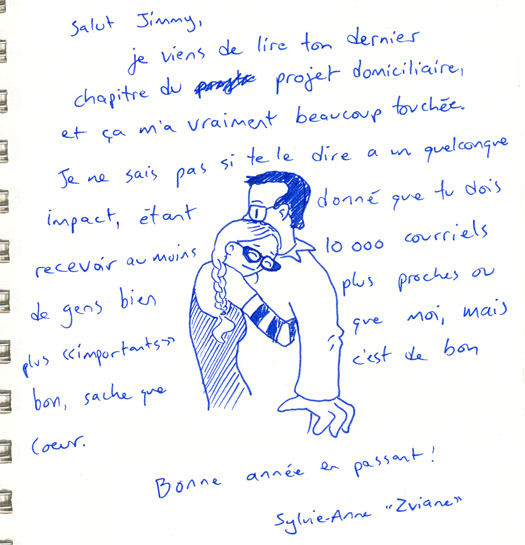 Salut Jimmy,
je viens de lire ton dernier
chapitre du projet domiciliaire,
et ça m'a vraiment beaucoup touchée.
Je ne sais pas si te le dire a un quelconque
impact, étant donné que tu dois
recevoir au moins 10 000 courriels
de gens bien plus proches ou
plus «importants» que moi, mais
bon, sache que c'est de bon
coeur.
Bonne année en passant!
Sylvie-Anne "Zviane"